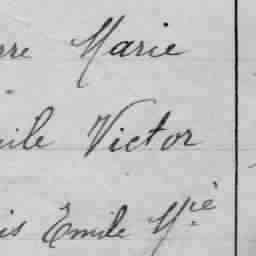 rre Marie
ile Victor
is Emile Mie